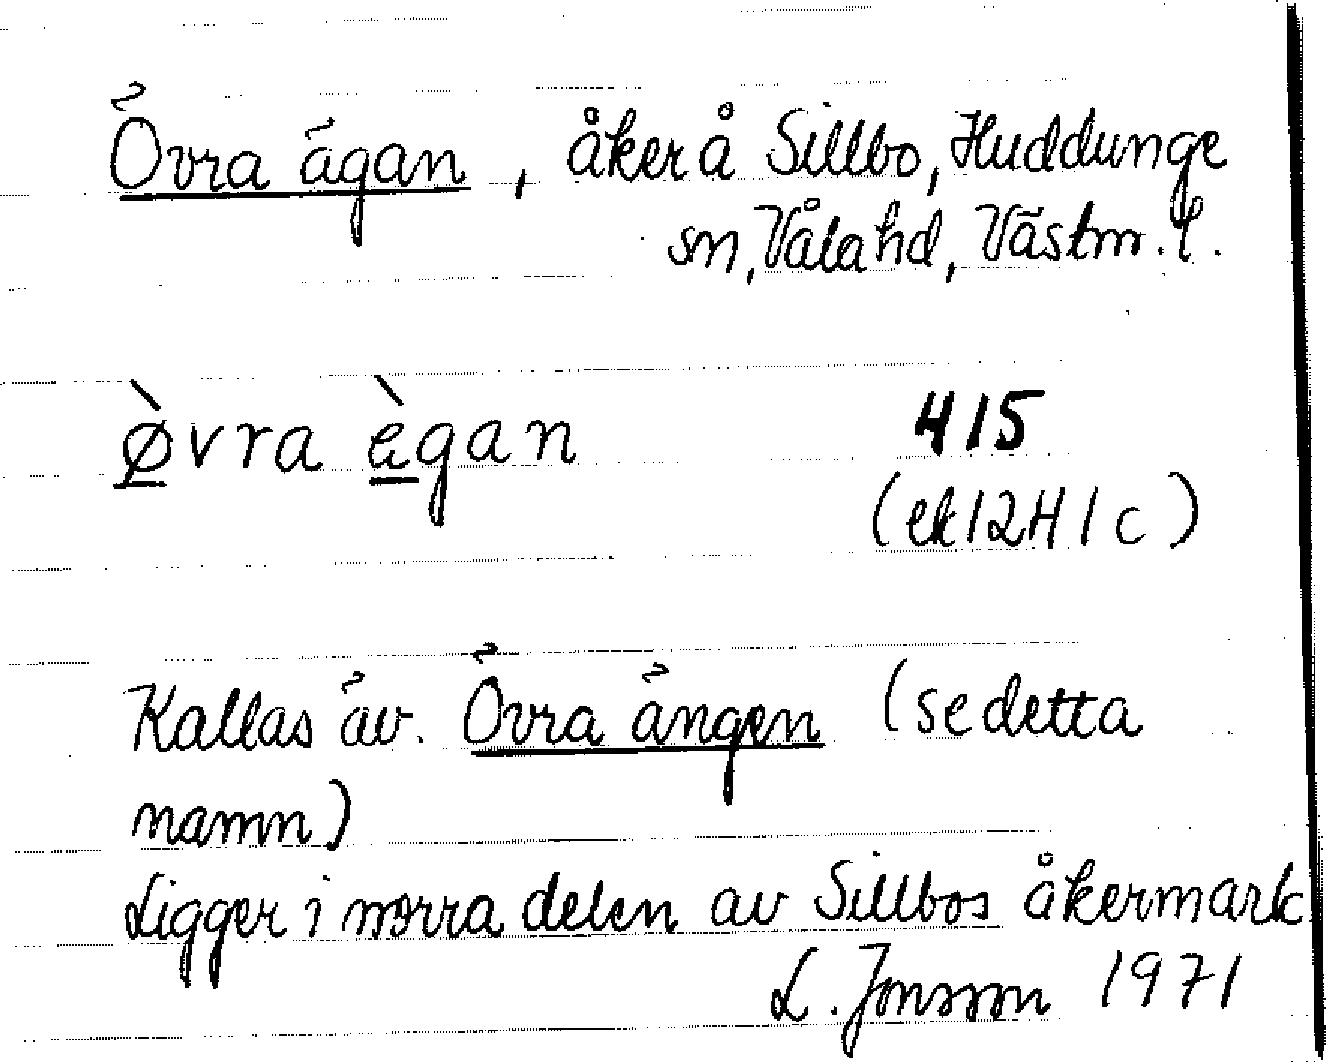 Övra ägan, åker å Sillbo, Huddunge
sn, Våla hd, Västm. l.
ø̱̀vra è̱gan
415
(ek 12H 1c)
Kallas äv. Övra ängen (se detta
namn)
Ligger i norra delen av Sillbos åkermark
L. Jonsson 1971